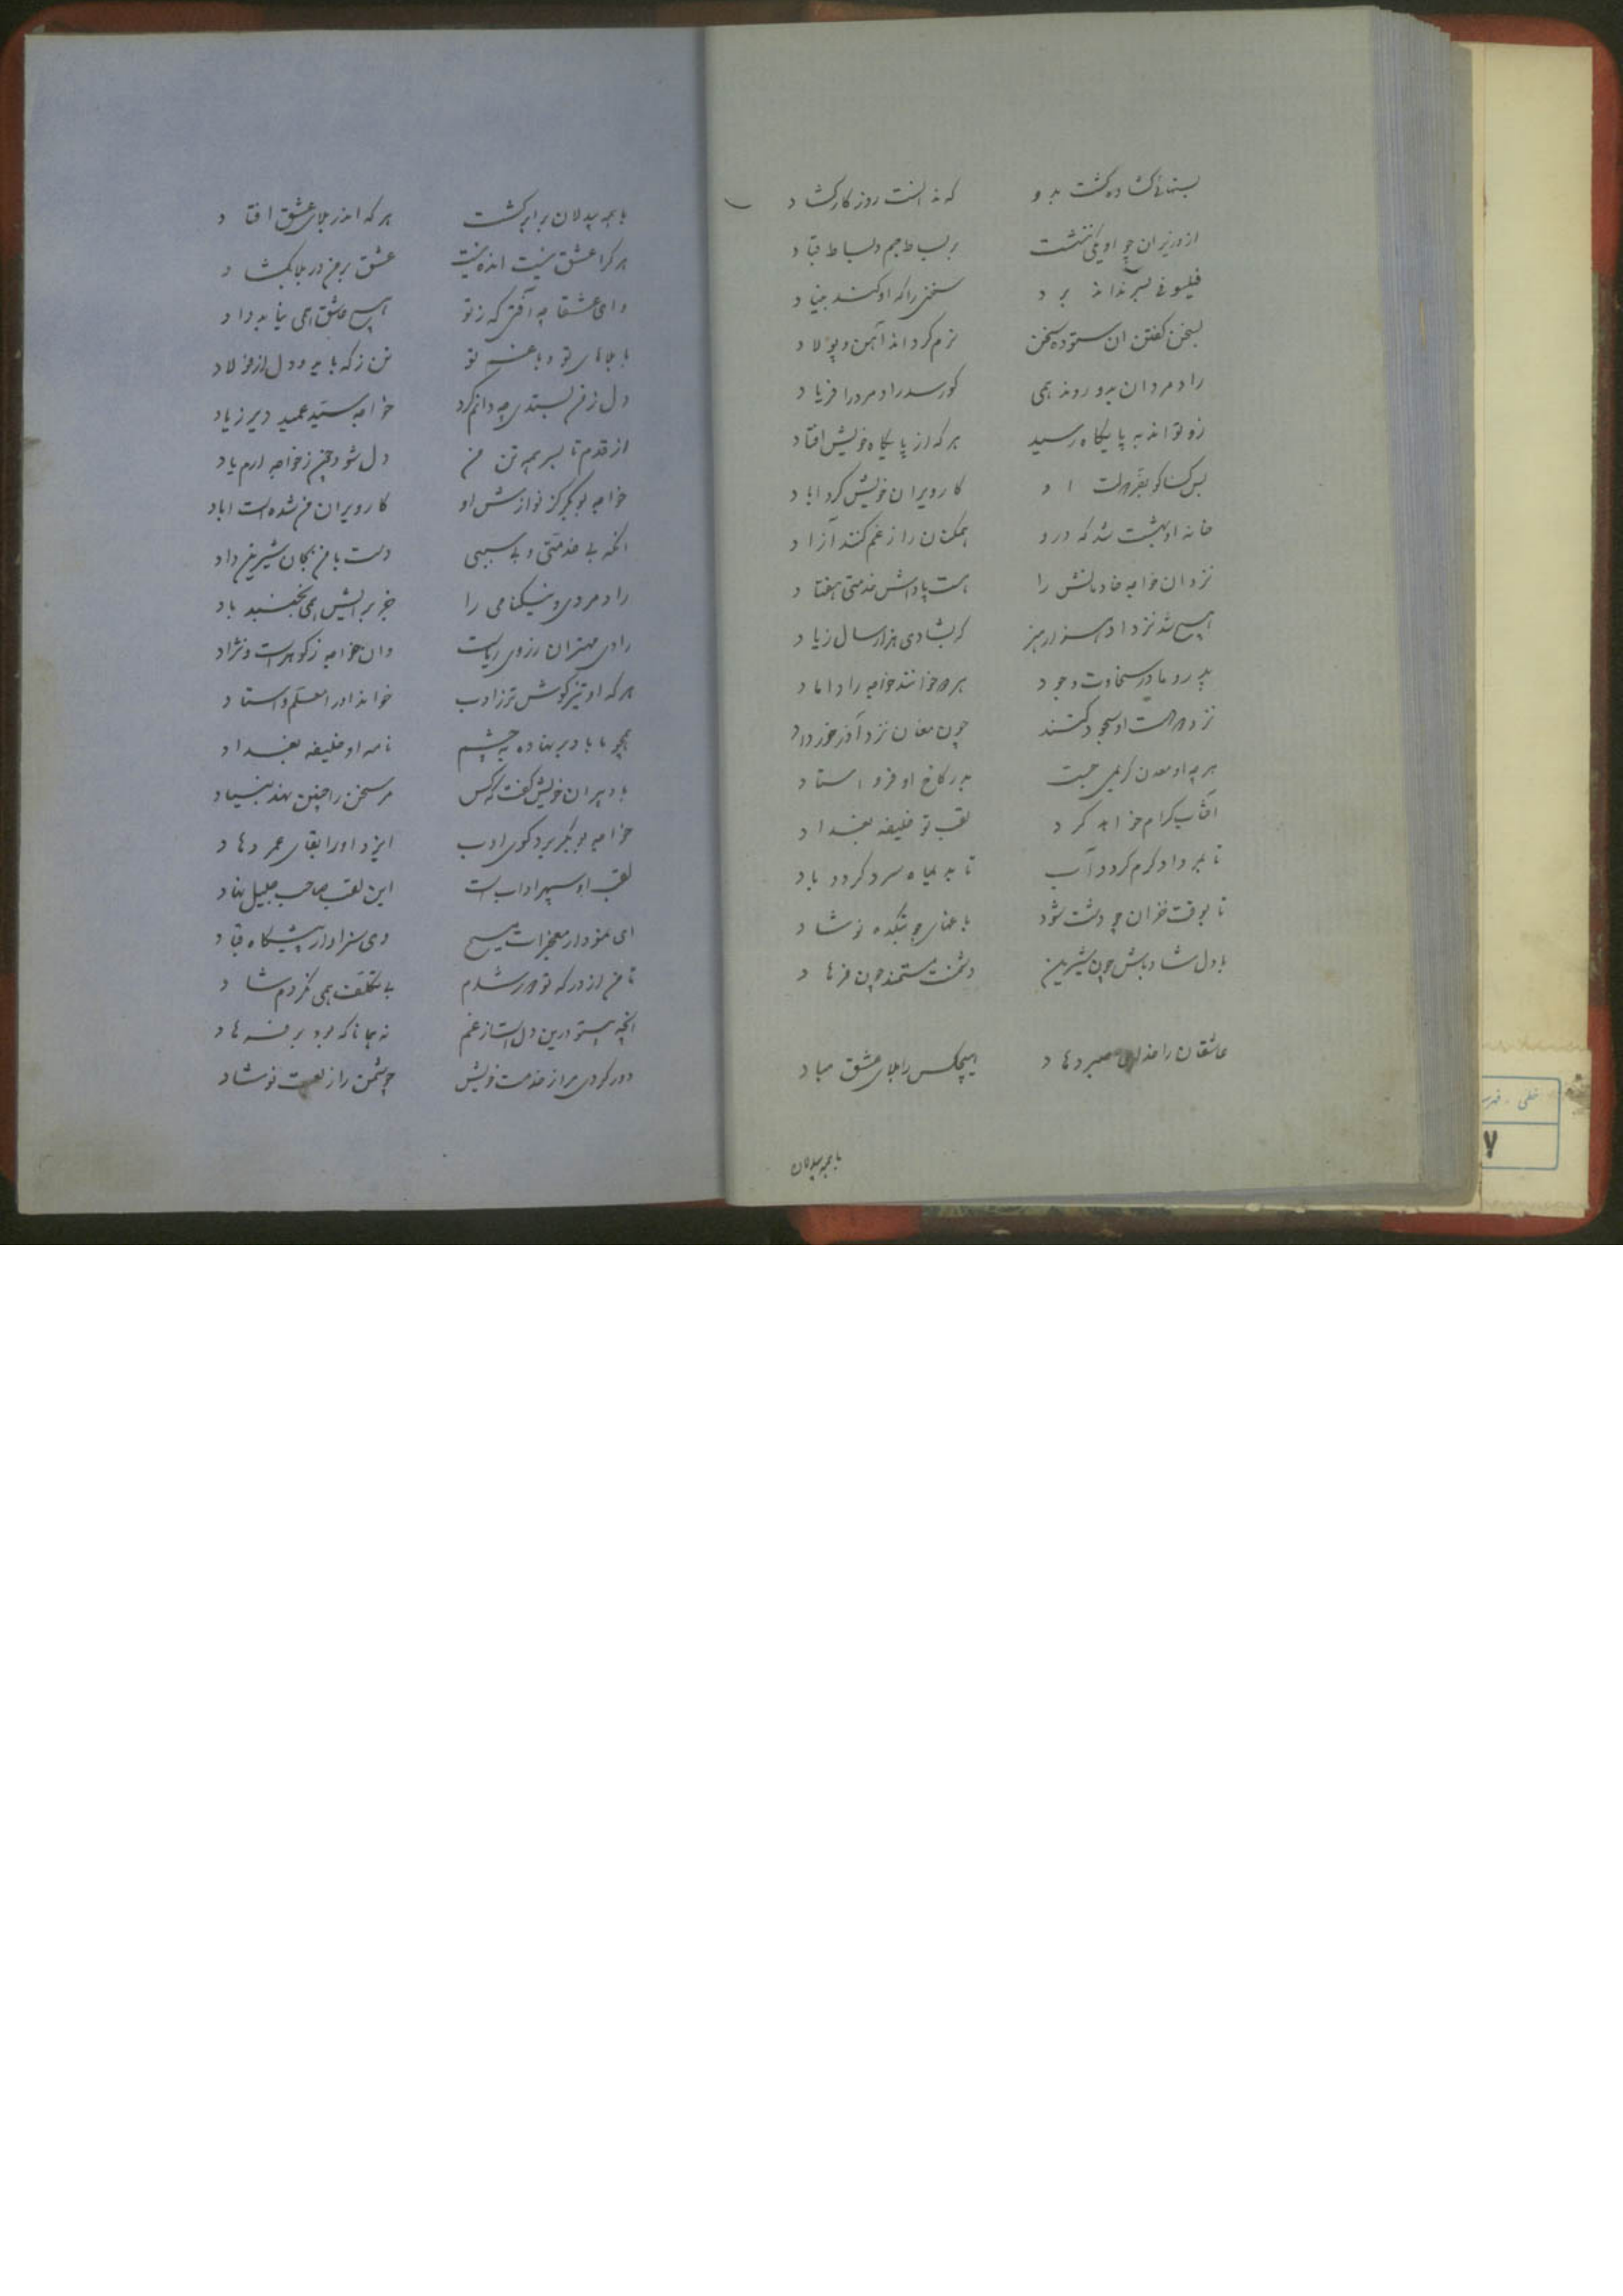 بستهائی گشاده گشت بدو که ندانست روزگار گشاد
از وزیران چو او یکی ننشست بر بساط جم و بساط قباد
فیلسوفی بسر نداند برد سخنی را که او کند بنیاد
بسخن گفتن ان ستوده سخن نرم گرداند آهن و پولاد
رادمردان بدو روند همی کو رسد رادمرد را فریاد
زو تواند به پایگاه رسید هر که از پایگاه خویش افتاد
بس کسا کو بفر دولت او کار ویران خویش کرد اباد
خانه او بهشت شد که درو همگنان را ز غم کند آزاد
نزد ان خواجه خادمانش را هست پاداش خدمتی هفتاد
هیچ شه نزد او سزد هرگز که بشادی هزار سال زیاد
پدر و مادر سخاوت و جود هر دو خوانند خواجه را داماد
نزد او دست او سجود کنند چون مغان نزد آذر خرداد
هر چه او معدن کریمی جست بدر کاخ او فرو استاد
آفتاب کرام خواهد کرد لقب تو خلیفه بغداد
تا بمرداد گرم گردد آب تا به دیماه سرد گردد باد
تا بوقت خزان چو دشت شود باغهای چو بتکده نوشاد
بادل شاد باش چون شیرین دشمنت مستمند چون فرهاد
عاشقان را خدای صبر دهاد هیچکس را بلای عشق مباد
با همه بیدلان
با همه بیدلان برابر گشت هر که اندر بلای عشق افتاد
هر کرا عشق نیست انده نیست عشق بر من در بلا بگشاد
وای عشقا چه آفتی که ز تو هیچ عاشق همی نیابد داد
با بلاهای تو و با غم تو تن ز که باید و دل از فولاد
دل ز من بستدی چه دانم کرد خواجه سید عمید دیر زیاد
از قدم تا بسر همه تن من دل شود چون ز خواجه ارم یاد
خواجه بوبکر کز نوازش او کار ویران من شده است اباد
انکه بی خدمتی و بی سببی دست با من بجان شیرین داد
رادمردی و نیکنامی را خوبرایش همی بخنبید باد
رادی مهتران ز روی ریاست وان خواجه ز گوهر است و نژاد
هر که او تیزگوش تر ز ادب خواند او را معلم و استاد
همچو بابا دبر نهاده به چشم نامه او خلیفه بغداد
با دبیران خویش گفت که کس مر سخن را چنین نهد بنیاد
خواجه بوبکر برد گوی ادب ایزد او را بقای عمر دهاد
لقب او سپهر اداب است این لقب صاحب جلیل نهاد
ای نمودار معجزات مسیح وی سزاوار پیشگاه قباد
تا من از درگه تو دور شدم بی تکلف همی نگردم شاد
انچه بر تو درین دل است از غم نه همانا که بود بر فرهاد
دور کردی مرا ز خدمت خویش چو شمن را ز لعبت نوشاد